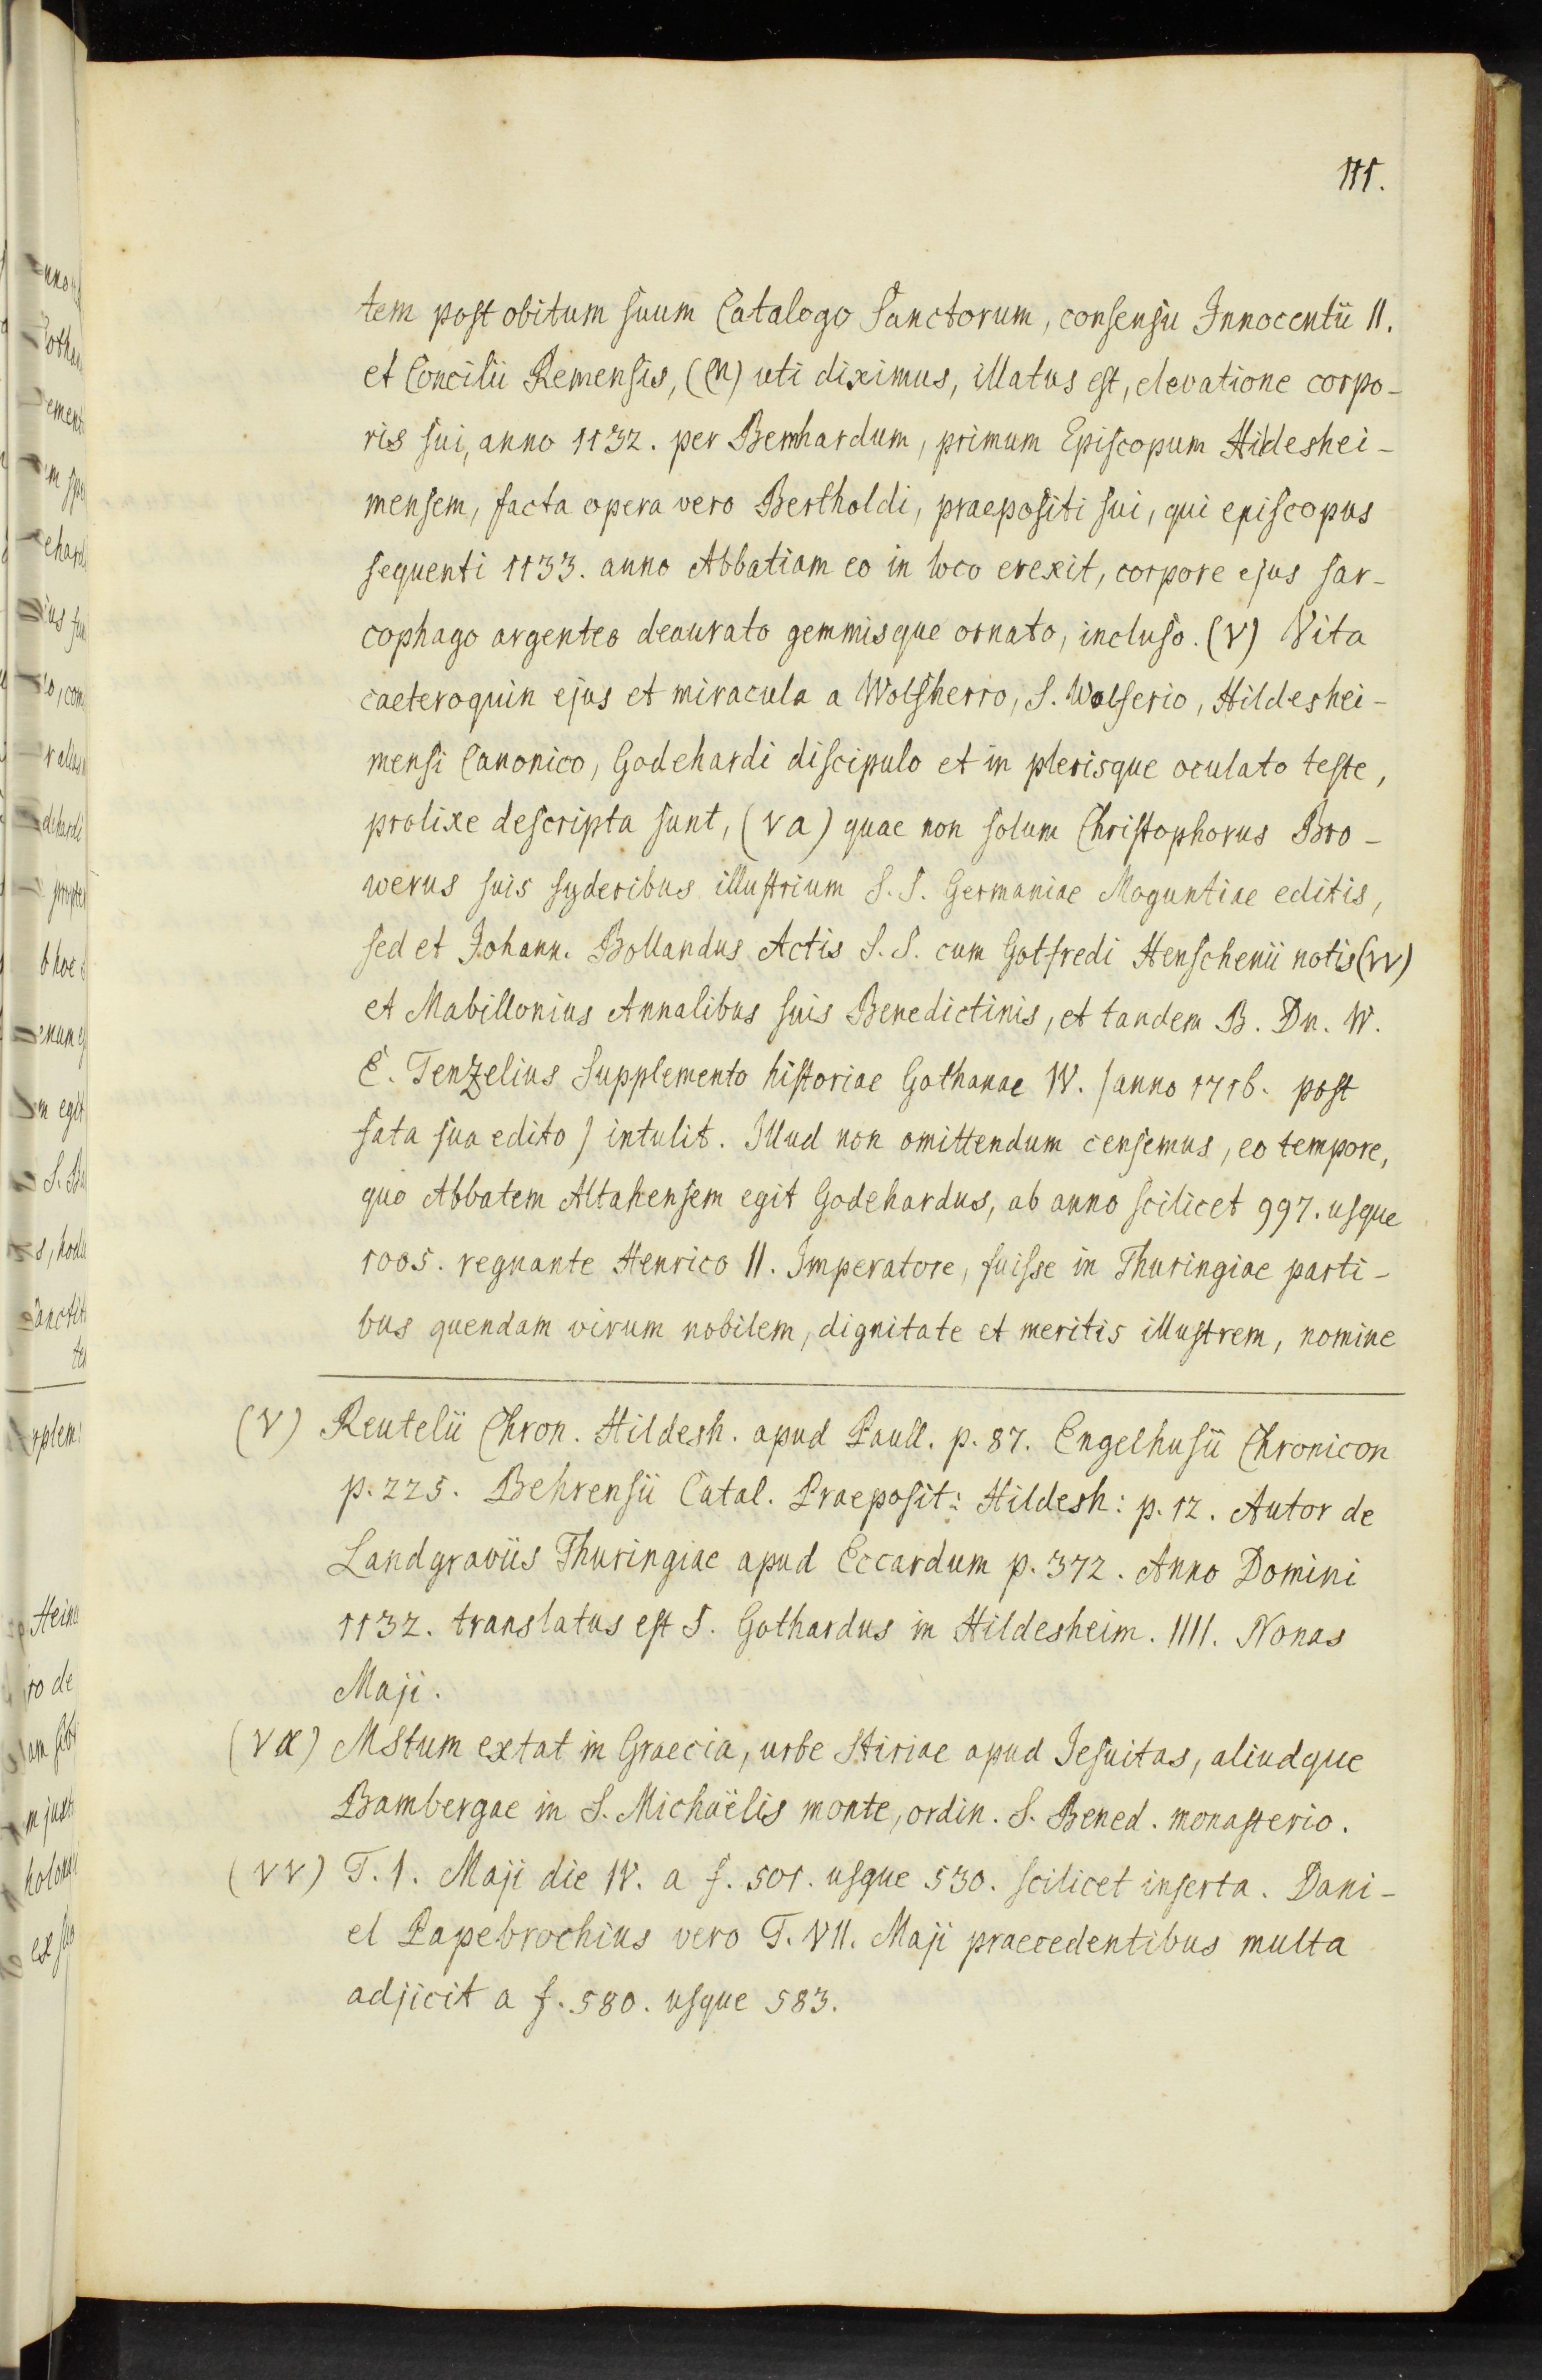 111.
tem post obitum suum Catalogo Sanctorum, consensu Innocentii II.
et Concilii Remensis, (n) uti diximus, illatus est, elevatione corpo-
ris sui, anno 1132. per Bernhardum, primum Episcopum Hildeshei-
mensem, facta opera vero Bertholdi, praepositi sui, qui episcopus
sequenti 1133. anno Abbatiam eo in loco erexit, corpore ejus sar-
cophago argenteo deaurato gemmisque ornato, incluso. (v) Vita
caeteroquin ejus et miracula a Wolfherro, S. Wolferio, Hildeshei-
mensi Canonico, Godehardi discipulo et in plerisque oculato teste,
prolixe descripta sunt, (va) quae non solum Christophorus Bro-
werus suis syderibus illustrium S. S. Germaniae Moguntiae editis,
sed et Johann. Bollandus Actis S. S. cum Gotfredi Henschenii notis (vv)
et Mabillonius Annalibus suis Benedictinis, et tandem B. Dn. W.
E. Tenzelius Supplemento historiae Gothanae IV. /anno 1716. post
fata sua edito / intulit. Illud non omittendum censemus, eo tempore,
quo Abbatem Altahensem egit Godehardus, ab anno scilicet 997. usque
1005. regnante Henrico II. Imperatore, fuisse in Thuringiae parti-
bus quendam virum nobilem, dignitate et meritis illustrem, nomine
(v) Reutelii Chron. Hildesh. apud Paull. p. 87. Engelhusii Chronicon
p. 225. Behrensii Catal. Praeposit: Hildesh: p. 12. Autor de
Landgraviis Thuringiae apud Eccardum p. 372. Anno Domini
1132. translatus est S. Gothardus in Hildesheim. IIII. Nonas
Maji.
(va) MStum extat in Graecia, urbe Stiriae apud Jesuitas, aliudque
Bambergae in S. Michaëlis monte, ordin. S. Bened. monasterio.
(vv) T. I. Maji die IV. a f. 501. usque 530. scilicet inserta. Dani-
el Papebrochius vero T. VII. Maji praecedentibus multa
adjicit a f. 580. usque 583.